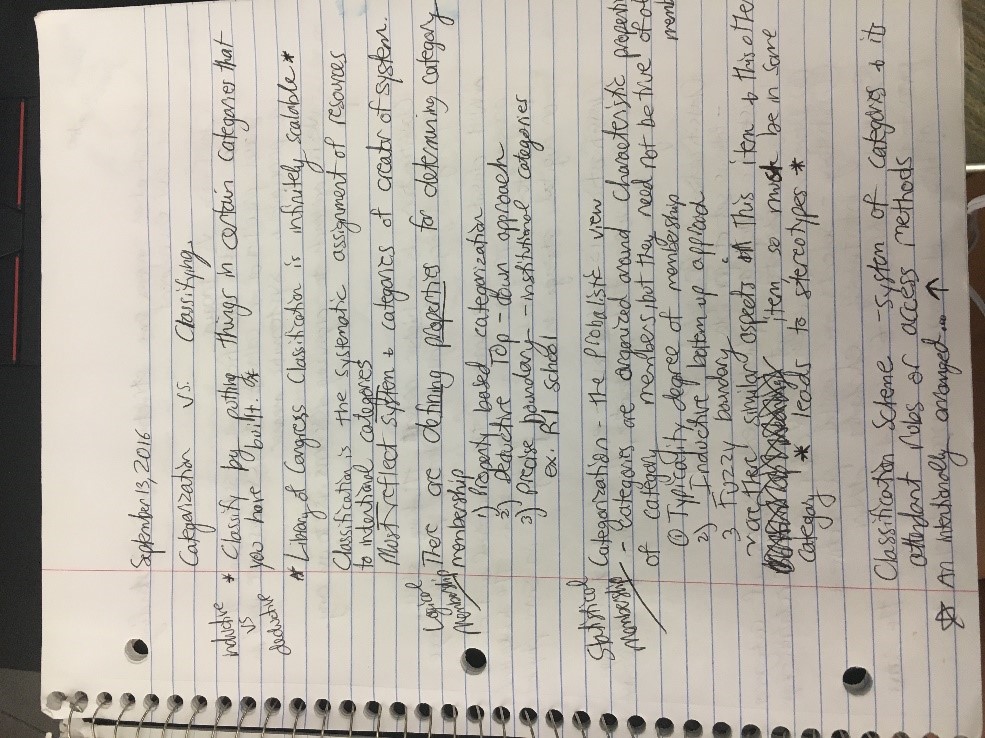 September 13, 2016
Categorization vs. Classifying
inductive
vs
deductive
* Classify by putting things in certain categories that
you have built.
* Library of Congress Classification is infinitely scalable *
Classification is the systematic assignment of resources
to intentional categories
Must reflect system & categories of creator of system.
Logical
Membership
There are defining properties for determining category
membership
1) Property based categorization
2) deductive Top-down approach
3) Precise boundary - institutional categories
ex. R1 school
Statistical
Membership
Categorization - the probalistic view
- Categories are organized around characteristic properti
of category members, but they need not be true of al
memb
① Typicality degree of membership
2) Inductive bottom up approach
3 Fuzzy boundary
are there similar aspects this item & this other
item so must be in same
category
* leads to stereotypes *
Classification Scheme - System of categories & its
attendant rules or access methods
An intentionally arranged... ↑